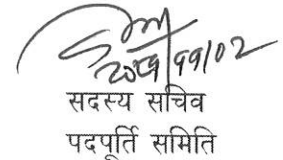 २०८१/११/०२
सदस्य सचिव
पदपूर्ति समिति